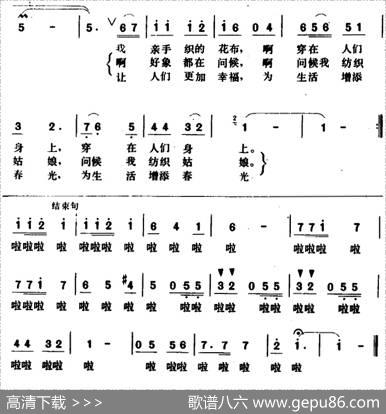 5 - 5. ∨ 6 7 i i i 2 i 6 0 4 6 5 6 5 1
我 亲手 织的 花布， 啊 穿在 人们
啊 好象 都在 问候， 啊 问候我 纺织
让 人们 更加 幸福， 为 生活 增添
3 2. 7 6 5 4 4 3 2 2 1 - 1 -
身 上， 穿 在 人们 身 上。
姑 娘， 问候 我 纺织 姑 娘。
春 光， 为生 活 增添 春 光
结束句
i i 2 i i i 2 i 6 4 1 6 - 7 7 i 7
啦啦啦 啦 啦啦啦 啦 啦 啦 啦 啦 啦啦啦 啦
7 7 i 7 6 5 #4 5 0 5 5 3 2 0 5 5 3 2 0 5 5
啦啦啦 啦 啦 啦 啦 啦 啦啦 啦啦 啦啦 啦啦 啦啦
4 4 3 2 1 - 0 5 5 6 7. 7 7 2 i. i 0
啦啦 啦啦 啦 啦啦 啦 啦 啦 啦 啦 啦
高清下载 >>> 歌谱八六 www.gepu86.com